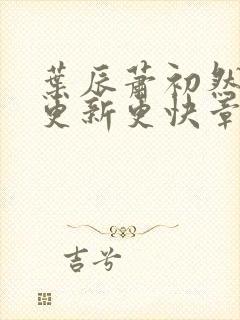 葉辰蕭初然
更新更快章
吉兮